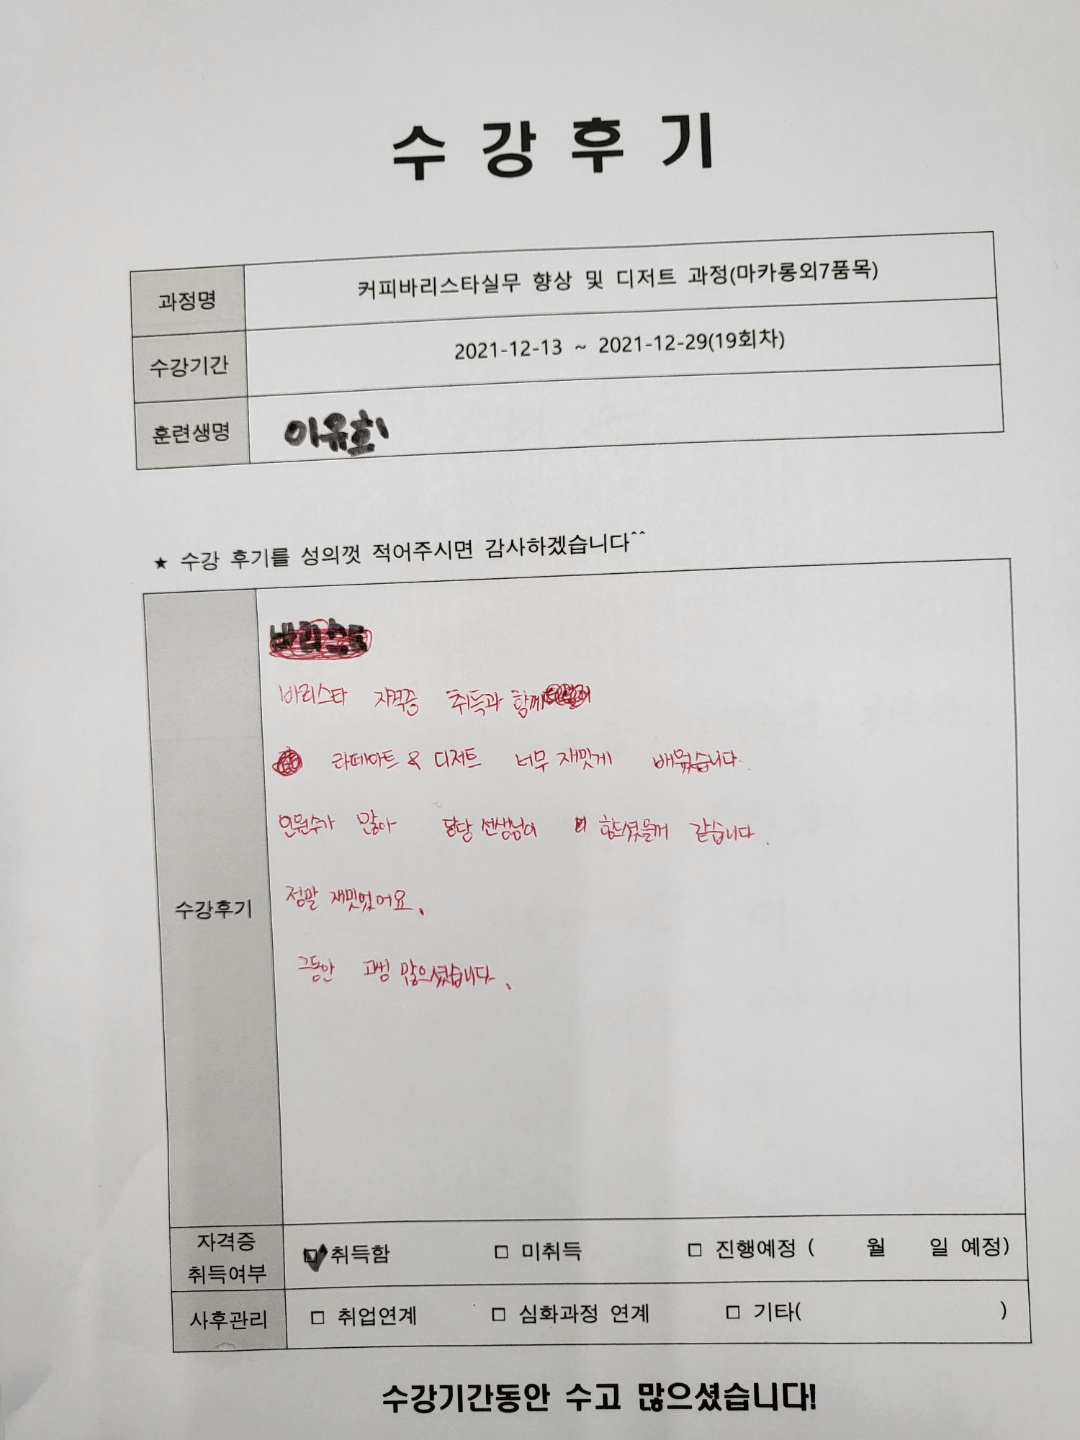 수강후기
과정명 커피바리스타실무 향상 및 디저트 과정(마카롱외7품목)
수강기간 2021-12-13 ~ 2021-12-29(19회차)
훈련생명 이유희
★ 수강 후기를 성의껏 적어주시면 감사하겠습니다^^
수강후기
바리스타 자격증 취득과 함께
라떼아트 & 디저트 너무 재밌게 배웠습니다.
인원수가 많아 담당 선생님이 힘드셨을꺼 같습니다.
정말 재밌었어요.
그동안 고생 많으셨습니다.
자격증 취득여부 ☑취득함 □ 미취득 □ 진행예정 ( 월 일 예정)
사후관리 □ 취업연계 □ 심화과정 연계 □ 기타( )
수강기간동안 수고 많으셨습니다!